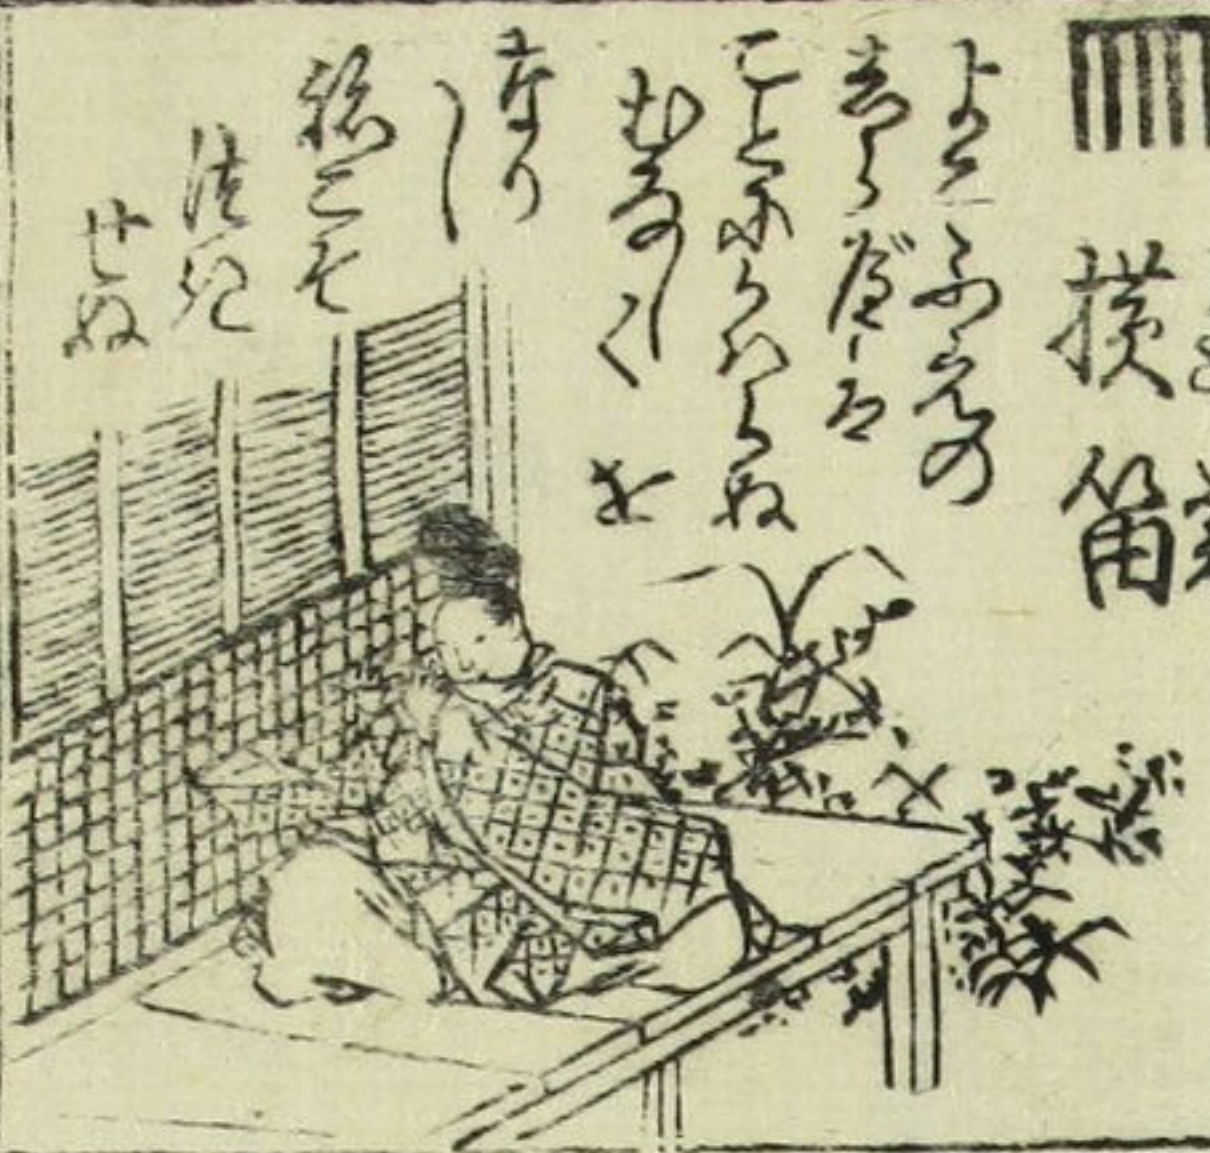 横笛
よこふえの
しらべは
ことにかはらぬ
むなしくを
なりし
ねこそ
つき
せぬ